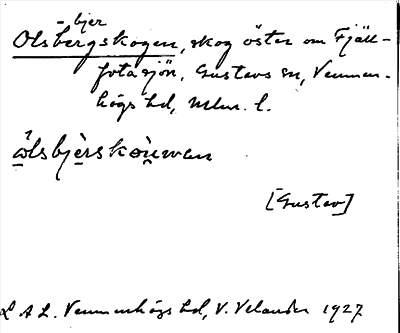 - bjer
Olsbergskogen, skog öster om Fjäll-
fotasjön, Gustavs sn, Vemmen-
högs hd, Mlm. l.
ålsbjèrskòwan
[Gustav]
L A L. Vemmenhögs hd, V. Velander 1927